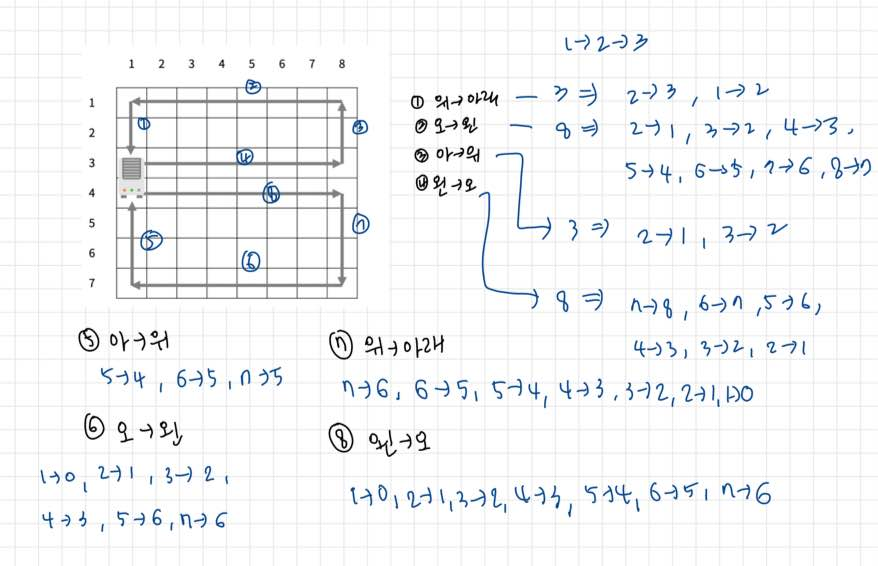 1→2→3
1 2 3 4 5 6 7 8
1
2
3
4
5
6
7
②
①
③
④
⑧
⑤
⑦
⑥
① 위→아래 — 3 ⇒ 2→3, 1→2
② 오→왼 — 8 ⇒ 2→1, 3→2, 4→3,
5→4, 6→5, 7→6, 8→7
③ 아→위
④ 왼→오
3 ⇒ 2→1, 3→2
8 ⇒ 7→8, 6→7, 5→6,
4→3, 3→2, 2→1
⑤ 아→위
5→4, 6→5, 7→5
⑥ 오→왼
1→0, 2→1, 3→2,
4→3, 5→6, 7→6
⑦ 위→아래
7→6, 6→5, 5→4, 4→3, 3→2, 2→1, 1→0
⑧ 왼→오
1→0, 2→1, 3→2, 4→3, 5→4, 6→5, 7→6